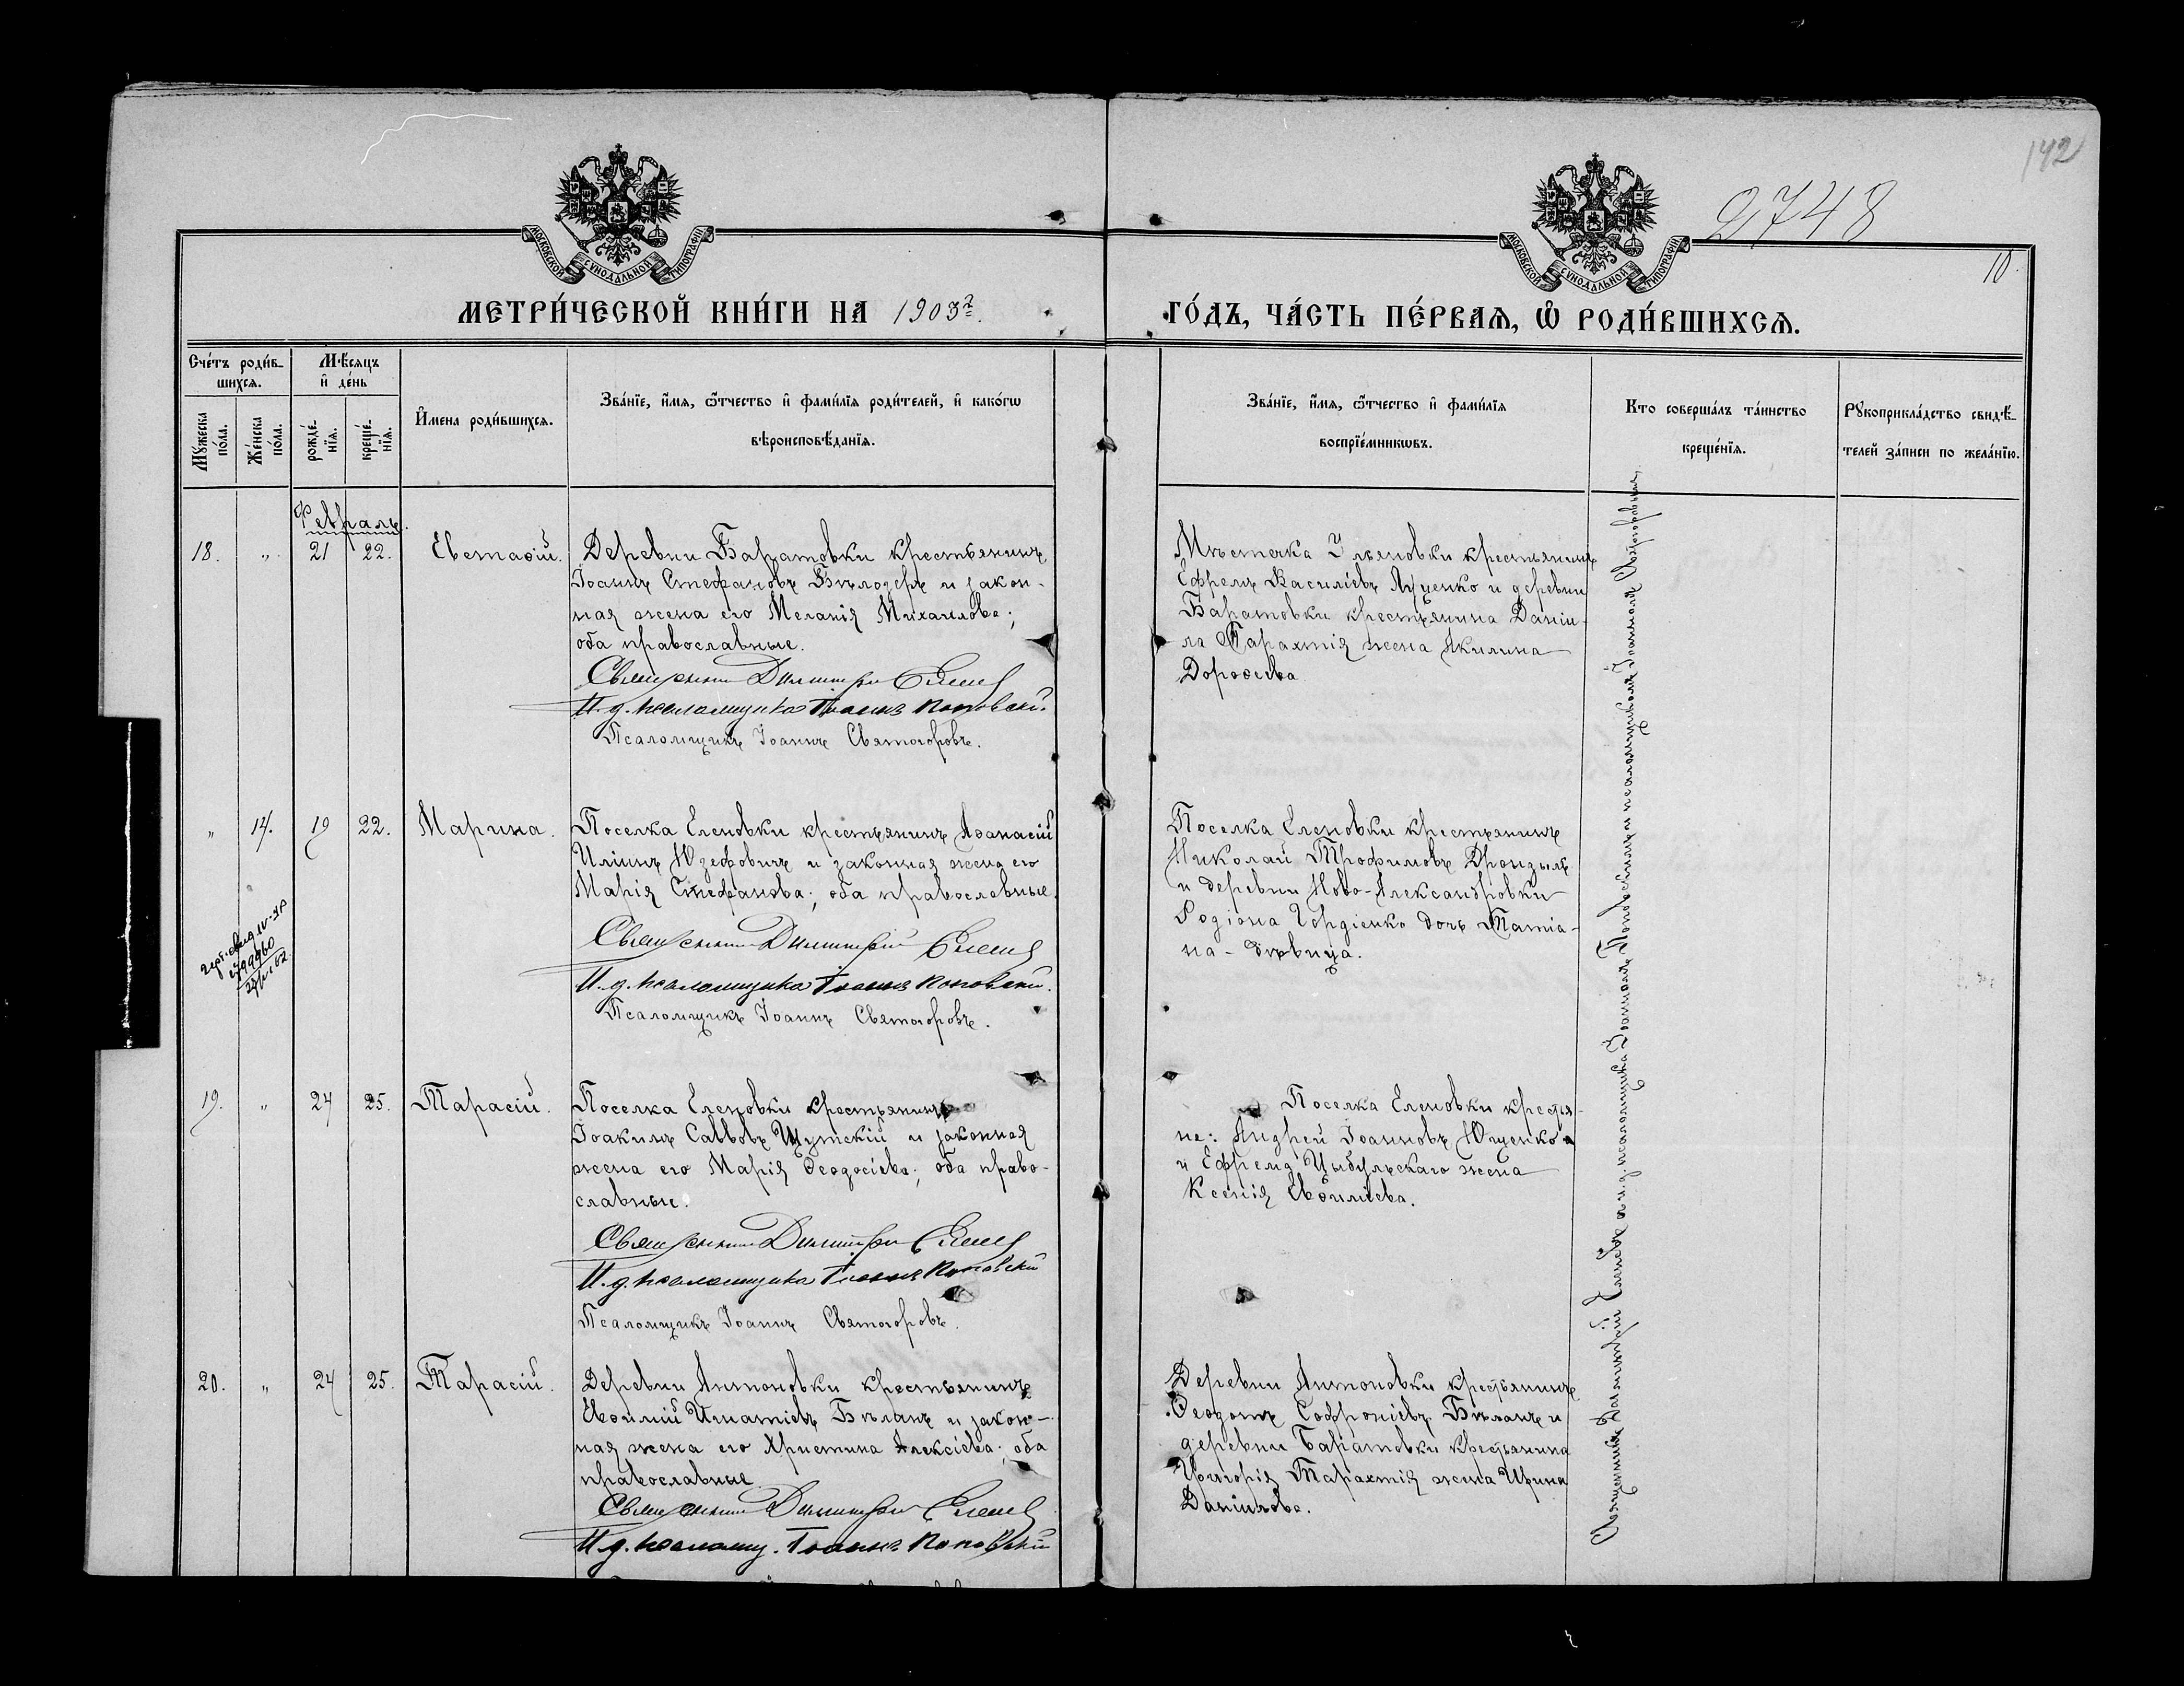 142
2748
10.
МОСКОВСКОЙ СѴНОДАЛЬНОЙ ТИПОГРАФІИ
МОСКОВСКОЙ СѴНОДАЛЬНОЙ ТИПОГРАФІИ
МЕТРИ́ЧЕСКОЙ КНИ́ГИ НА 1903 г.
ГО́ДЪ, ЧА́СТЬ ПЕ́РВАѦ, Ѡ РОДИ́ВШИХСѦ.
Сче́тъ роди́в-
шихсѧ.
Мѣ́сяцъ
и҆ де́нь
Мꙋжеска
по́ла.
Же́нска
по́ла.
рожде́-
нїѧ.
креще́-
нїѧ.
И҆мена роди́вшихсѧ.
Зва́нїе, и҆́мѧ, ѻ҆́тчество и҆ фами́лїѧ роди́телей, и҆ како́гѡ
вѣроисповѣ́данїѧ.
Зва́нїе, и҆́мѧ, ѻ҆́тчество и҆ фами́лїѧ
воспрїе́мникѡвъ.
Кто соверша́лъ та́инство
креще́нїѧ.
Рꙋкоприкла́дство свидѣ́-
телей за́писи по жела́нїю.
Февраль.
18. " 21 22. Евстафій.
Деревни Баратовки крестьянинъ
Іоаннъ Стефановъ Бѣлозеръ и закон-
ная жена его Меланія Михаилова;
оба православные.
Священникъ Димитрій Еленевъ
И. д. псаломщика Іоаннъ Поповскій.
Псаломщикъ Іоаннъ Святогоровъ.
Мѣстечка Ульяновки крестьянинъ
Ефремъ Василіевъ Луценко и деревни
Баратовки крестьянина Даніи-
ла Тарахтія жена Акилина
Дороѳеева
" 14. 19 22. Марина.
Поселка Еленовки крестьянинъ Аѳанасій
Иліинъ Юзефовичъ и законная жена его
Марія Стефанова; оба православные.
Священникъ Димитрій Еленевъ
И. д. псаломщика Іоаннъ Поповскій.
Псаломщикъ Іоаннъ Святогоровъ.
Поселка Еленовки крестьянинъ
Николай Трофимовъ Дрондзыль
и деревни Ново-Александровки
Родіона Гордіенко дочь Татіа-
на - дѣвица.
19. " 24 25. Тарасій.
Поселка Еленовки крестьянинъ
Іоакимъ Саввовъ Шутскій и законная
жена его Марія Ѳеодосіева; оба право-
славные.
Священникъ Димитрій Еленевъ
И. д. псаломщика Іоаннъ Поповскій
Псаломщикъ Іоаннъ Святогоровъ.
Поселка Еленовки крестья-
не: Андрей Іоанновъ Ющенко
и Ефрема Цыбульскаго жена
Ксенія Евѳиміева.
20. " 24 25. Тарасій.
Деревни Антоновки крестьянинъ
Евѳимій Игнатіевъ Бѣланъ и закон-
ная жена его Христина Алексіева; оба
православные
Священникъ Димитрій Еленевъ
И. д. псаломщ. Іоаннъ Поповскій
Деревни Антоновки крестьянинъ
Ѳеодотъ Софроніевъ Бѣланъ и
деревни Баратовки крестьянина
Григорія Тарахтія жена Ирина
Даніилова.
Священникъ Димитрій Еленевъ и и. д. псаломщика Іоаннъ Поповскій и псаломщикъ Іоаннъ Святогоровъ.